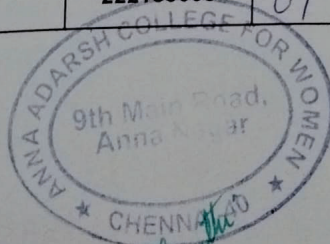 01
ANNA ADARSH COLLEGE FOR WOMEN
9th Main Road,
Anna Nagar
★ CHENNAI ★